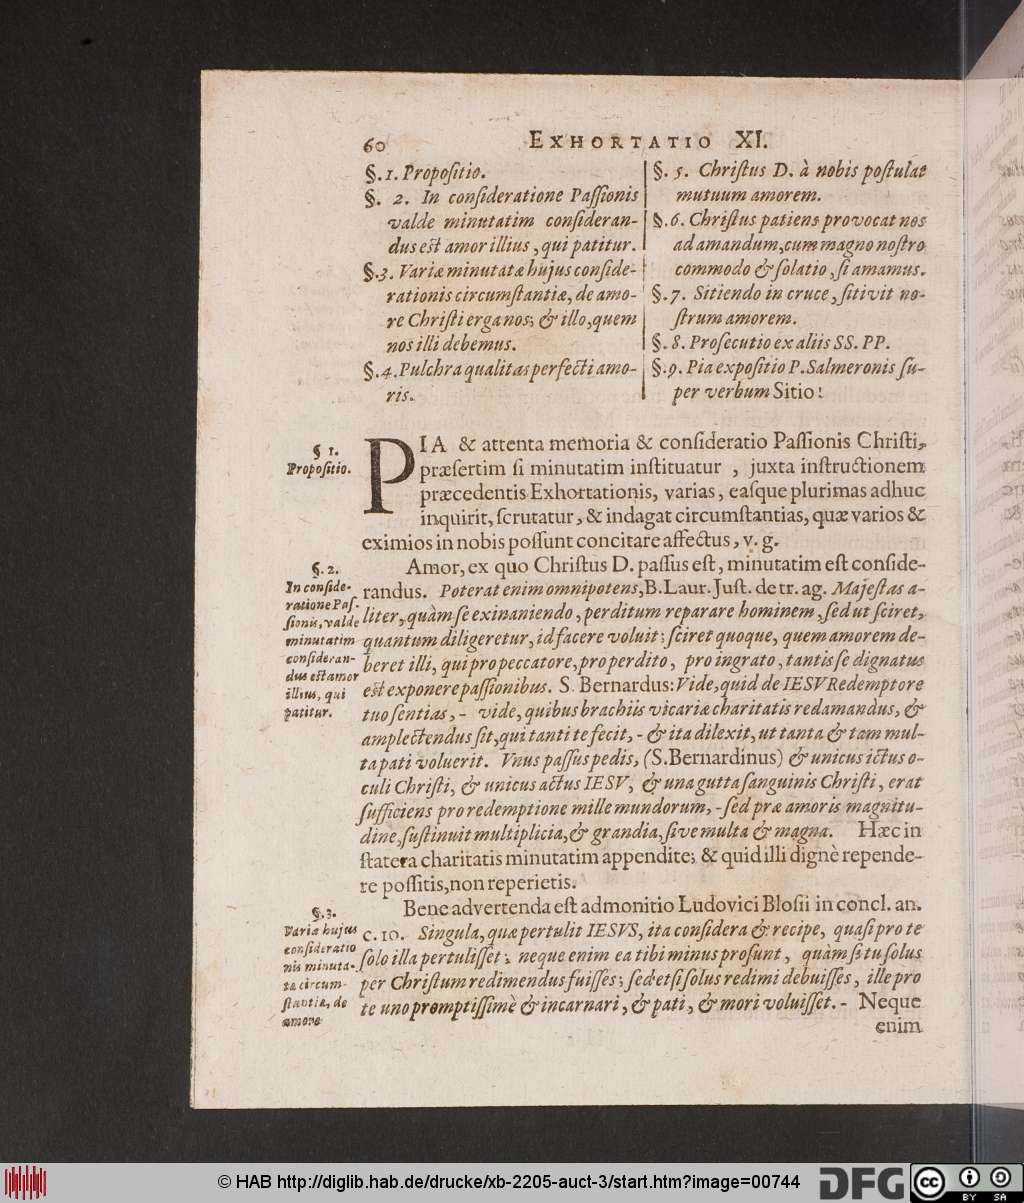 60 EXHORTATIO XI.
§.1. Propoſitio.
§. 2. In conſideratione Paſſionis
valde minutatim conſideran-
dus est amor illius, qui patitur.
§.3. Variæ minutatæ hujus conſide-
rationis circumſtantiæ, de amo-
re Chriſti erga nos; & illo, quem
nos illi debemus.
§.4. Pulchra qualitas perfecti amo-
ris.
§. 5. Chriſtus D. à nobis poſtulat
mutuum amorem.
§.6. Chriſtus patiens provocat nos
ad amandum, cum magno noſtro
commodo & ſolatio, ſi amamus.
§.7. Sitiendo in cruce, ſitivit no-
ſtrum amorem.
§.8. Proſecutio ex aliis SS. PP.
§.9. Pia expoſitio P. Salmeronis ſu-
per verbum Sitio!
§ 1.
Propoſitio.
PIA & attenta memoria & conſideratio Paſſionis Chriſti,
præſertim ſi minutatim inſtituatur, juxta inſtructionem
præcedentis Exhortationis, varias, eaſque plurimas adhuc
inquirit, ſcrutatur, & indagat circumſtantias, quæ varios &
eximios in nobis poſſunt concitare affectus, v. g.
§.2.
In conſide-
ratione Paſ-
ſionis, valde
minutatim
conſideran-
dus est amor
illius, qui
patitur.
Amor, ex quo Chriſtus D. paſſus eſt, minutatim eſt conſide-
randus. Poterat enim omnipotens, B. Laur. Juſt. de tr. ag. Majeſtas a-
liter, quàm ſe exinaniendo, perditum reparare hominem, ſed ut ſciret,
quantum diligeretur, id facere voluit; ſciret quoque, quem amorem de-
beret illi, qui pro peccatore, pro perdito, pro ingrato, tantis ſe dignatus
est exponere paſſionibus. S. Bernardus: Vide, quid de IESV Redemptore
tuo ſentias, - vide, quibus brachiis vicariæ charitatis redamandus, &
amplectendus ſit, qui tanti te fecit, - & ita dilexit, ut tanta & tam mul-
ta pati voluerit. Vnus paſſus pedis, (S. Bernardinus) & unicus ictus o-
culi Chriſti, & unicus actus IESV, & una gutta ſanguinis Chriſti, erat
ſufficiens pro redemptione mille mundorum, - ſed præ amoris magnitu-
dine, ſuſtinuit multiplicia, & grandia, ſive multa & magna. Hæc in
ſtatera charitatis minutatim appendite; & quid illi dignè repende-
re poſſitis, non reperietis.
§.3.
Variæ hujus
conſideratio
nis minuta-
tæ circum-
ſtantiæ, de
amore
Bene advertenda eſt admonitio Ludovici Bloſii in concl. an.
c. 10. Singula, quæ pertulit IESVS, ita conſidera & recipe, quaſi pro te
ſolo illa pertuliſſet; neque enim ea tibi minus proſunt, quàm ſi tu ſolus
per Chriſtum redimendus fuiſſes; ſed etſi ſolus redimi debuiſſes, ille pro
te uno promptiſſimè & incarnari, & pati, & mori voluiſſet. - Neque
enim
© HAB http://diglib.hab.de/drucke/xb-2205-auct-3/start.htm?image=00744
DFG
cc BY SA